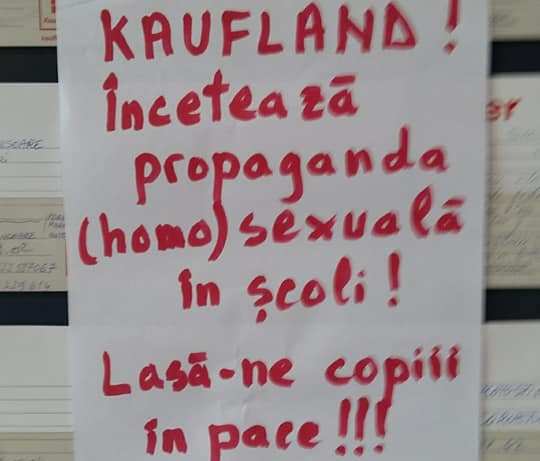 KAUFLAND!
Încetează
propaganda
(homo)sexuală
în școli!
Lasă-ne copiii
în pace!!!